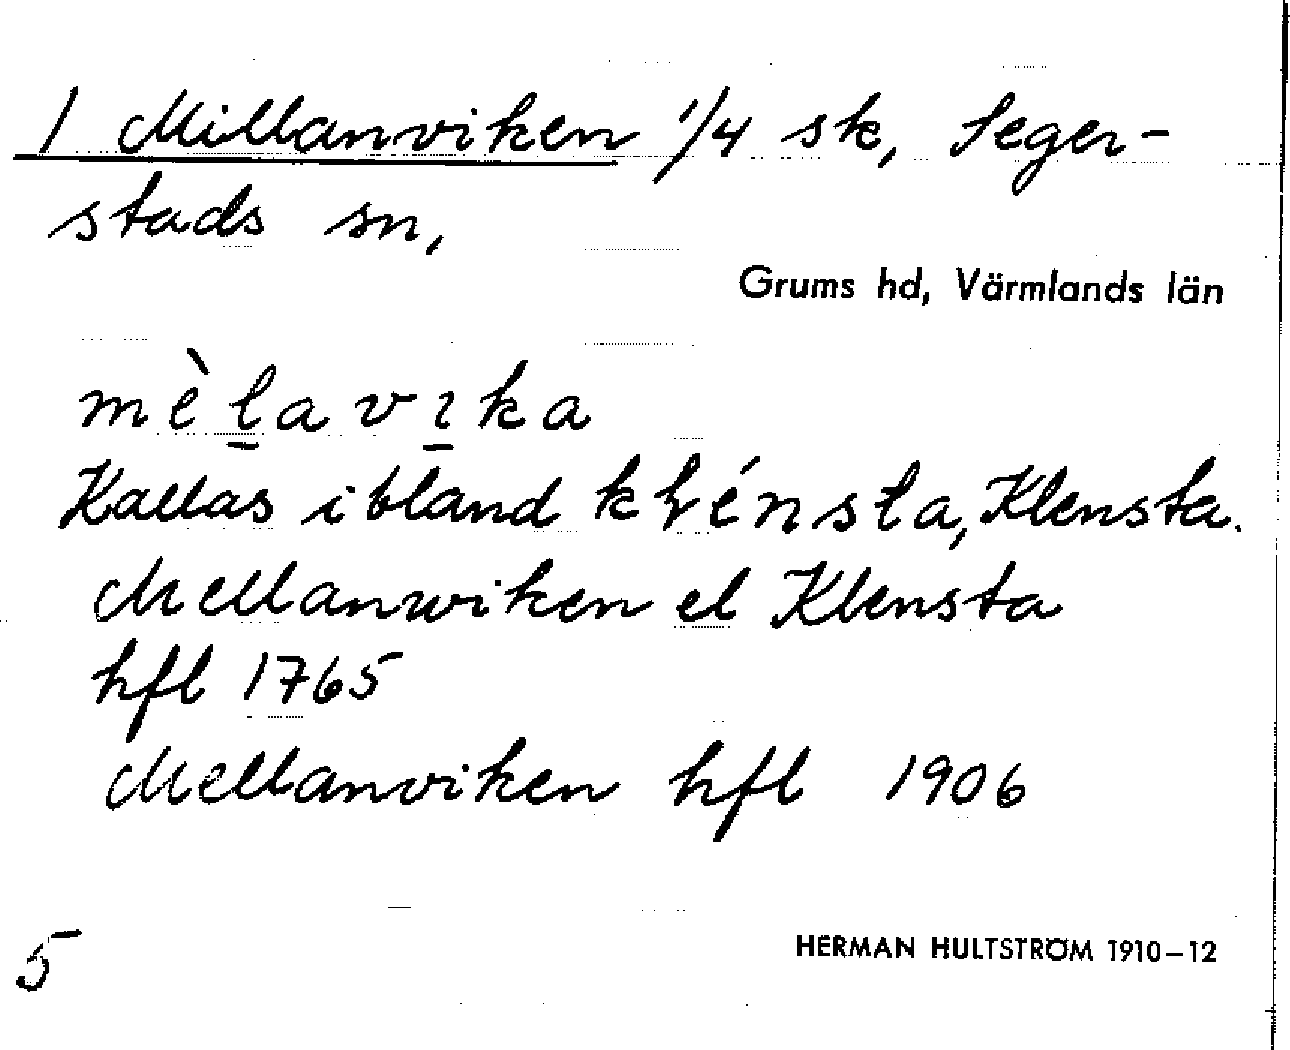 1 Millanviken 1/4 sk, Seger-
stads sn,
Grums hd, Värmlands län
mèl̠avi̠ka
Kallas ibland kḷénsta, Klensta.
Mellanwiken el Klensta
hfl 1765
Mellanviken hfl 1906
5
HERMAN HULTSTRÖM 1910–12